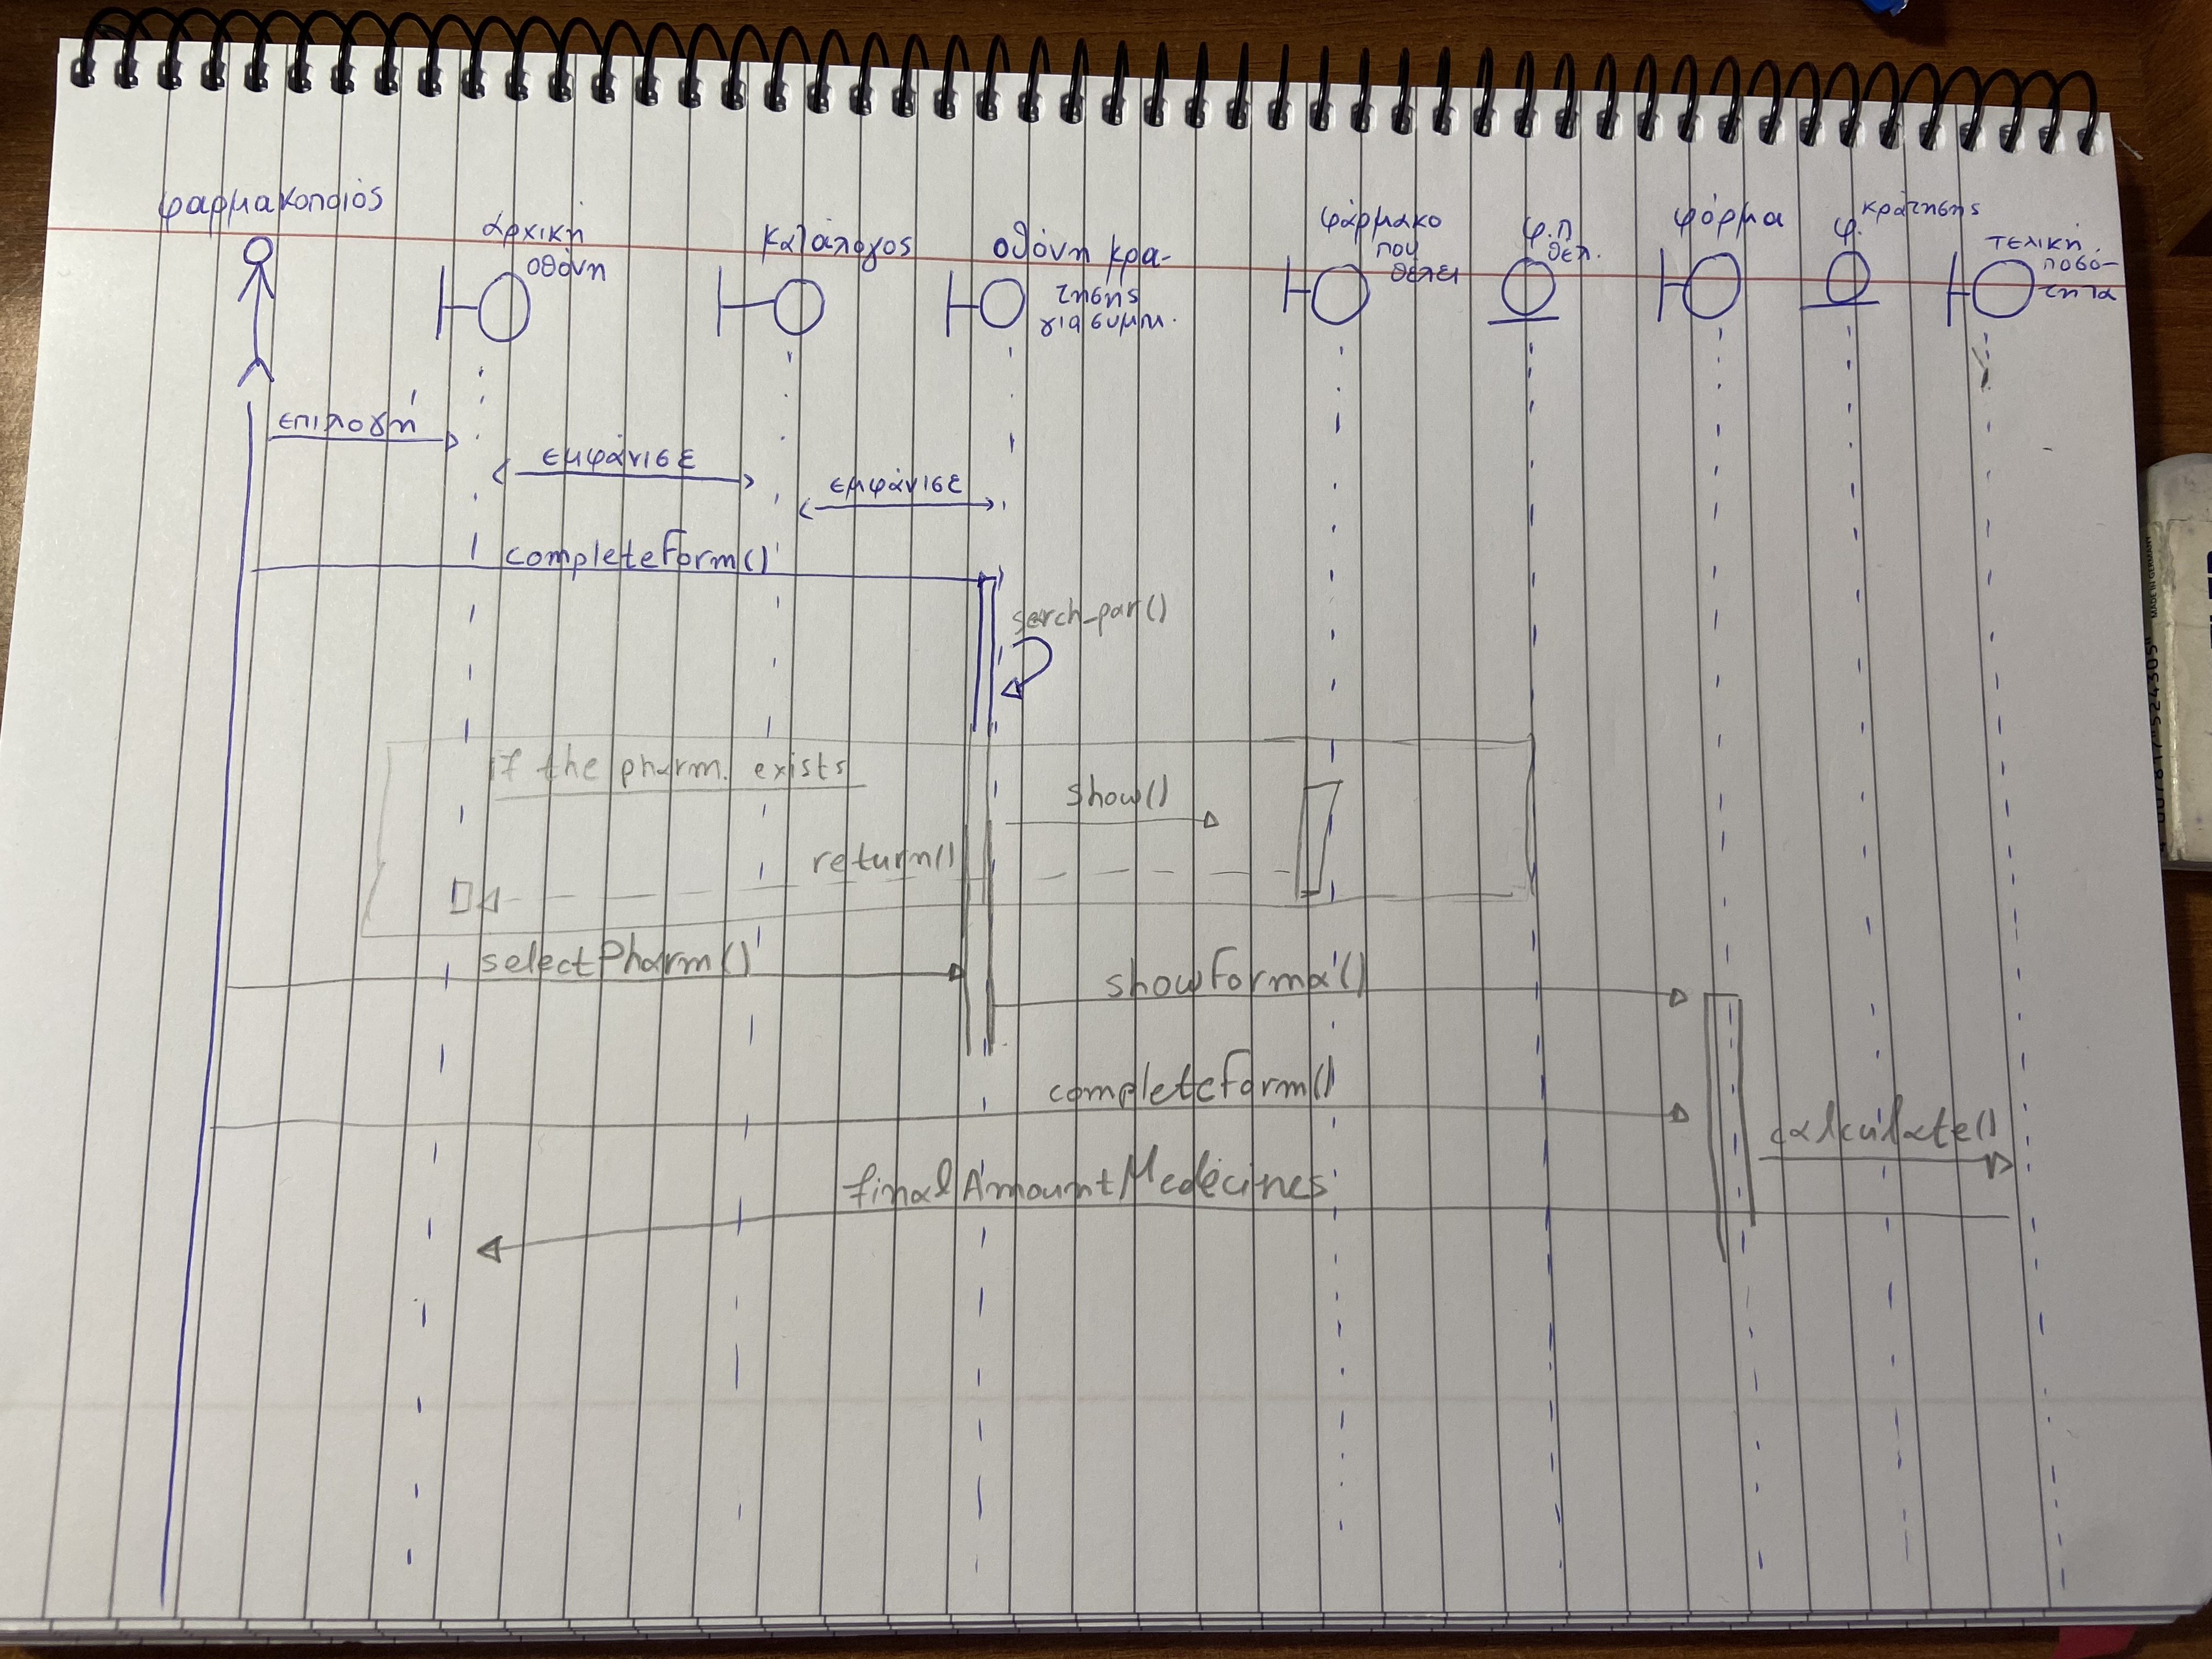 φαρμακοποιός
αρχική
οθόνη
κατάλογος
οθόνη κρα-
τησης
για συμπ.
φάρμακο
που
θέλει
φ.π
θελ.
φόρμα
φ. κράτησης
τελική
ποσό-
τητα
επιλογή
εμφάνισε
εμφάνισε
completeform()
serch-par()
if the pharm. exists
show()
return()
selectPharm()
showforma()
completeform()
calculate()
finalAmountMedicines
4 007817 524305
MADE IN GERMANY